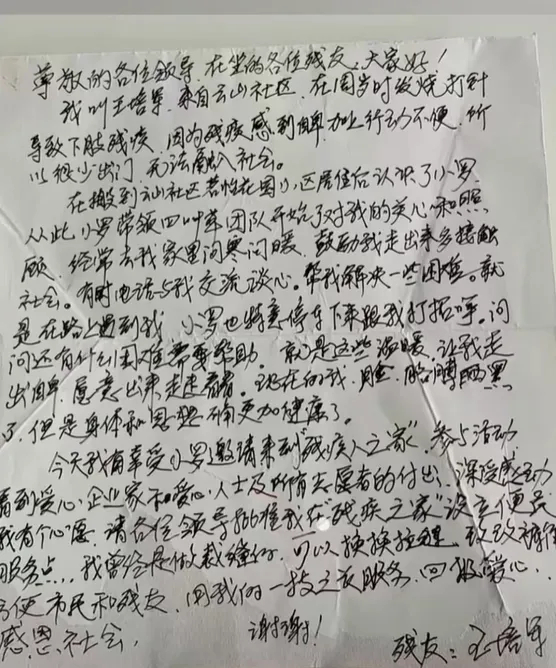 尊敬的各位领导、在坐的各位残友：大家好！
我叫王培军，来自云山社区，在周岁时发烧打针
导致下肢残疾，因为残疾感到自卑，加上行动不便，所
以很少出门，无法融入社会。
在搬到云山社区若怡花园小区居住后认识了小罗，
从此小罗带领四叶草团队开始了对我的关心和照
顾，经常去我家里问寒问暖，鼓励我走出来多接触
社会。有时电话与我交流谈心。帮我解决一些困难。就
是在路上遇到我，小罗也特意停车下来跟我打招呼。问
问还有什么困难需要帮助。就是这些温暖，让我走
出自卑，愿意出来走走看看。现在的我，脸、胳膊晒黑
了，但是身体和思想确更加健康了。
今天我有幸受小罗邀请来到"残疾人之家"，参与活动，
看到爱心企业家和爱心人士及所有志愿者的付出，深受感动
我有个心愿，请各位领导批准我在"残疾之家"设立便民
服务点... 我曾经是做裁缝的，可以换换拉链，改改裤
方便市民和残友，用我的一技之长服务、回报爱心...
感恩社会。 谢谢！
残友：王培军